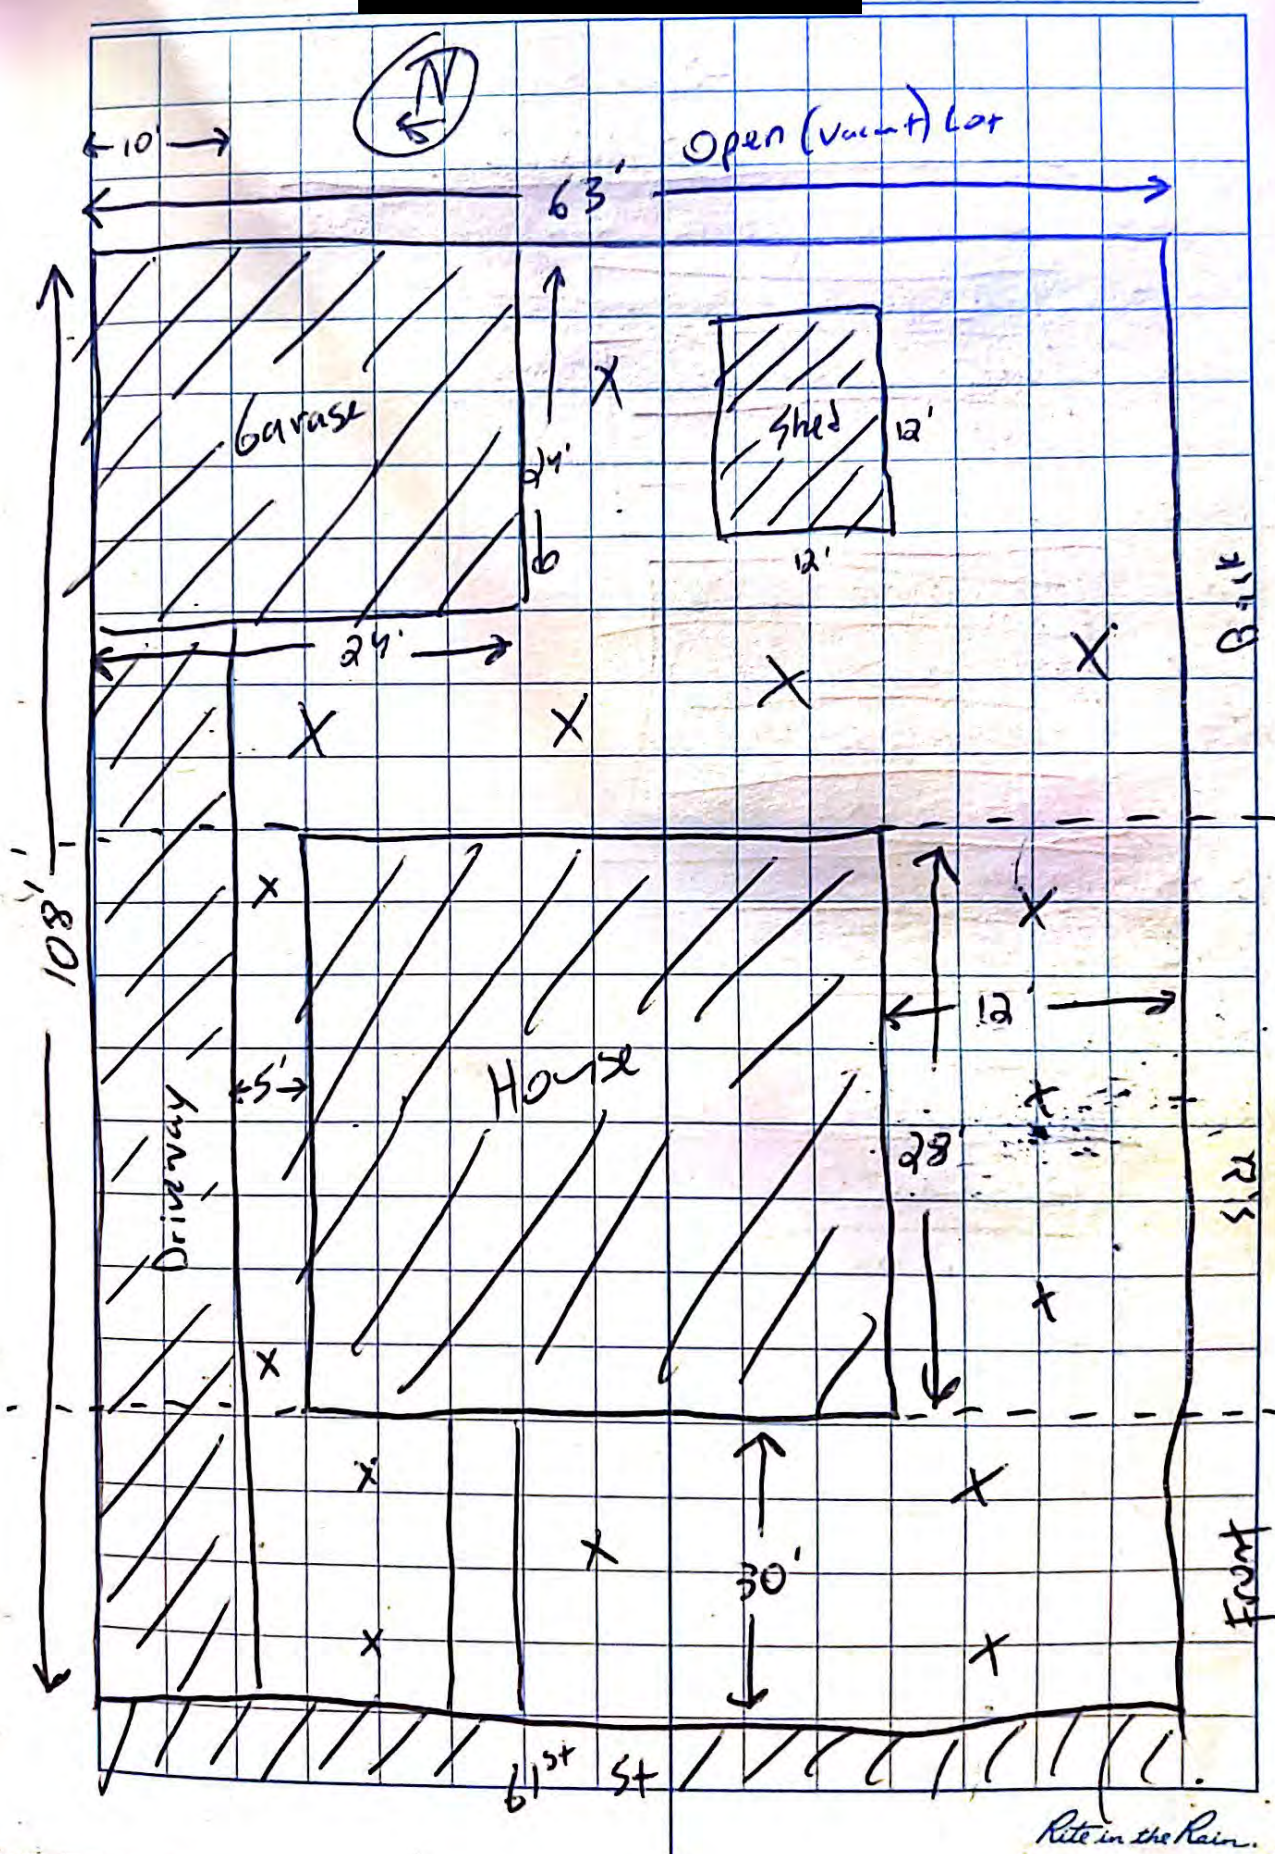 N
10'
Open (Vacant) Lot
63'
Garage
24'
Shed
12'
12'
24'
Back
X
X
X
X
X
108'
X
X
12'
5'
House
X
28'
Side
Driveway
X
X
X
X
X
30'
Front
X
X
61st St
Rite in the Rain.